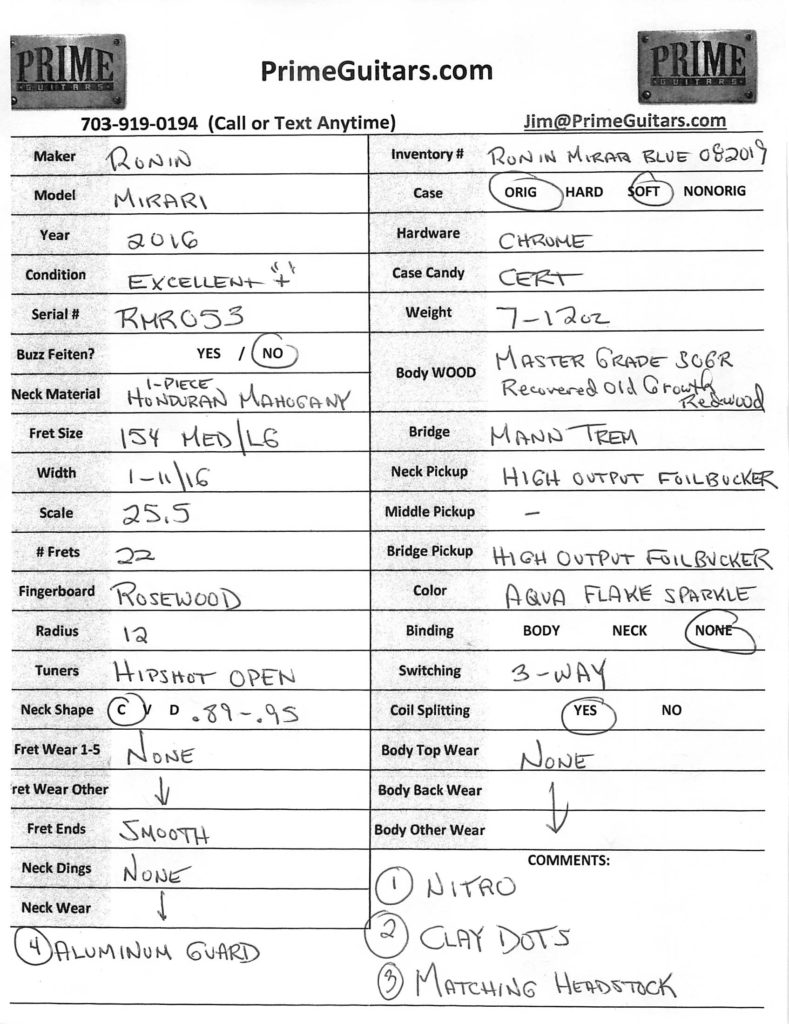 PRIME
GUITARS
PrimeGuitars.com
PRIME
GUITARS
703-919-0194 (Call or Text Anytime)
Jim@PrimeGuitars.com
Maker RONIN
Inventory # RONIN MIRARI BLUE 082019
Model MIRARI
Case ORIG HARD SOFT NONORIG
Year 2016
Hardware CHROME
Condition EXCELLENT "+"
Case Candy CERT
Serial # RMR053
Weight 7-12oz
Buzz Feiten? YES / NO
Body WOOD MASTER GRADE
Recovered Old Growth
Redwood
Neck Material 1-PIECE
HONDURAN MAHOGANY
Fret Size 154 MED/LG
Bridge MANN TREM
Width 1-11/16
Neck Pickup HIGH OUTPUT FOILBUCKER
Scale 25.5
Middle Pickup –
# Frets 22
Bridge Pickup HIGH OUTPUT FOILBUCKER
Fingerboard ROSEWOOD
Color AQUA FLAKE SPARKLE
Radius 12
Binding BODY NECK NONE
Tuners HIPSHOT OPEN
Switching 3-WAY
Neck Shape C V D .89-.95
Coil Splitting YES NO
Fret Wear 1-5 NONE
Body Top Wear NONE
ret Wear Other ↓
Body Back Wear ↓
Fret Ends SMOOTH
Body Other Wear
Neck Dings NONE
Neck Wear ↓
COMMENTS:
1 NITRO
2 CLAY DOTS
3 MATCHING HEADSTOCK
4 ALUMINUM GUARD